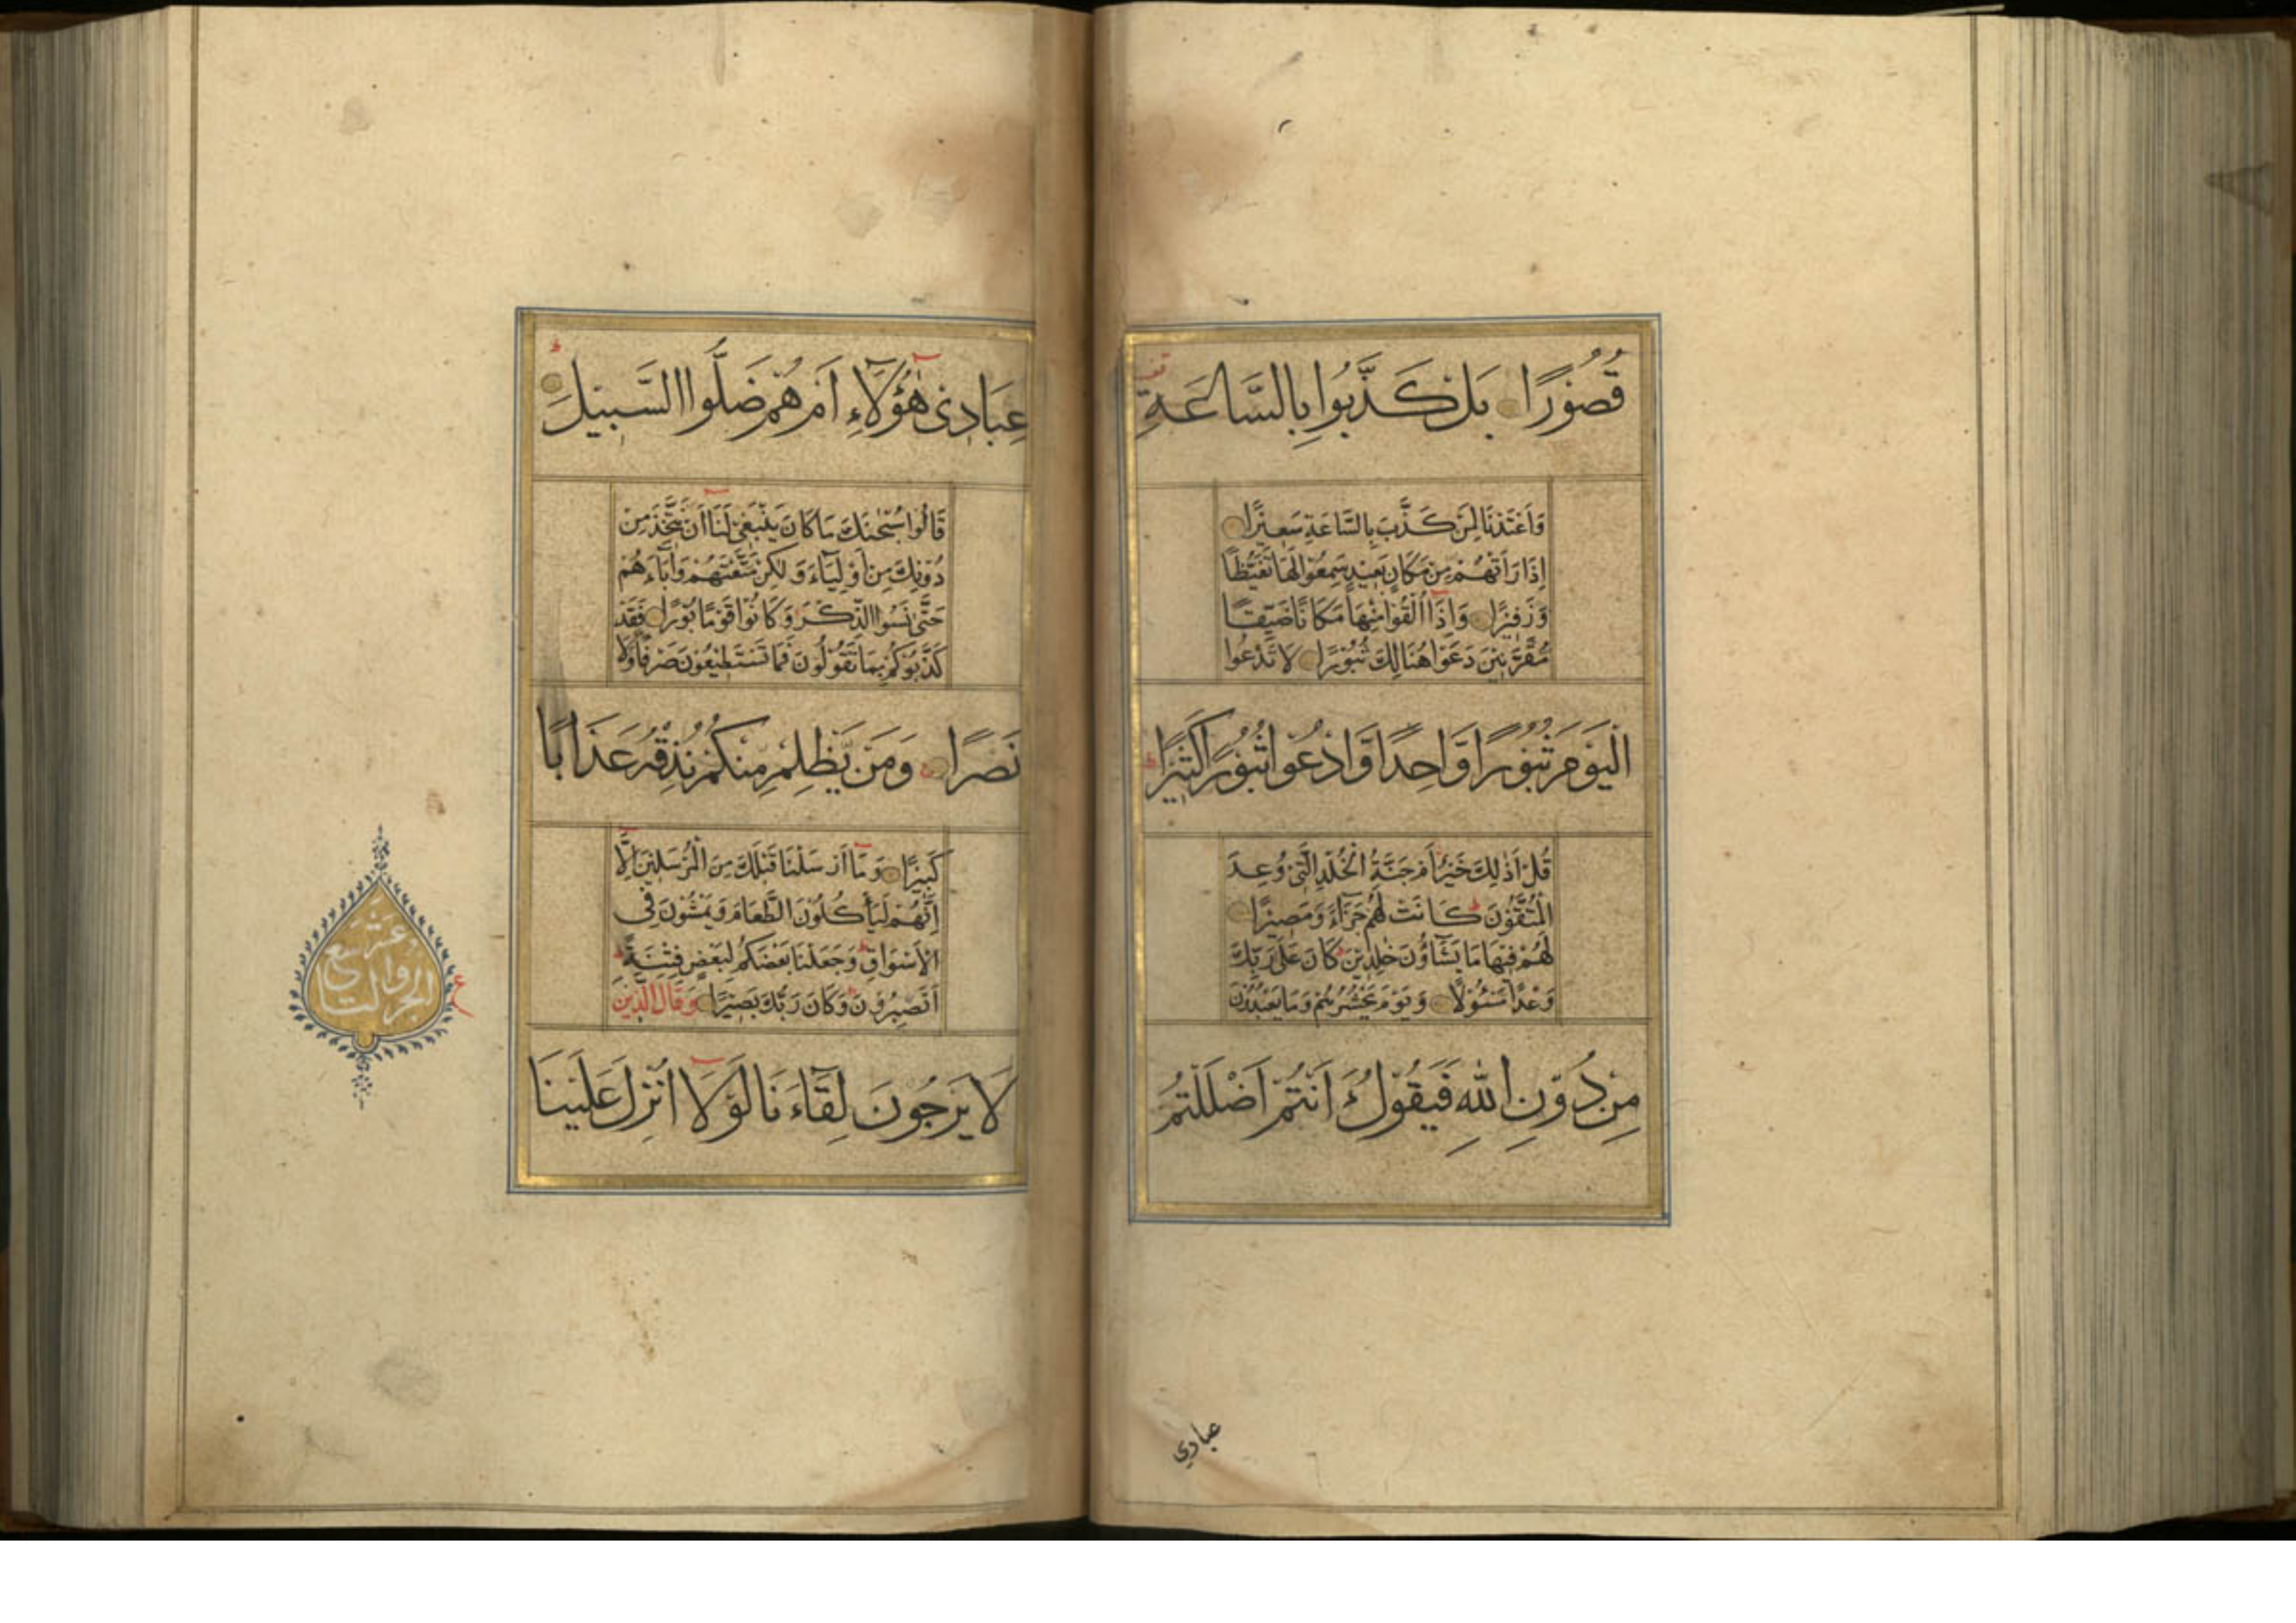 قُصُوْرًا بَلْ كَذَّبُوا بِالسَّاعَةِ
وَاَعْتَدْنَا لِمَنْ كَذَّبَ بِالسَّاعَةِ سَعِيْرًا
اِذَا رَاَتْهُمْ مِنْ مَكَانٍ بَعِيْدٍ سَمِعُوْا لَهَا تَغَيُّظًا
وَزَفِيْرًا وَاِذَآ اُلْقُوْا مِنْهَا مَكَانًا ضَيِّقًا
مُقَرَّنِيْنَ دَعَوْا هُنَالِكَ ثُبُوْرًا لَا تَدْعُوا
الْيَوْمَ ثُبُوْرًا وَّاحِدًا وَّادْعُوْا ثُبُوْرًا كَثِيْرًا
قُلْ اَذٰلِكَ خَيْرٌ اَمْ جَنَّةُ الْخُلْدِ الَّتِيْ وُعِدَ
الْمُتَّقُوْنَ كَانَتْ لَهُمْ جَزَآءً وَمَصِيْرًا
لَهُمْ فِيْهَا مَا يَشَآؤُنَ خٰلِدِيْنَ كَانَ عَلٰى رَبِّكَ
وَعْدًا مَسْئُوْلًا وَيَوْمَ يَحْشُرُهُمْ وَمَا يَعْبُدُوْنَ
مِنْ دُوْنِ اللّٰهِ فَيَقُوْلُ ءَاَنْتُمْ اَضْلَلْتُمْ
عبادي
عِبَادِيْ هٰٓؤُلَآءِ اَمْ هُمْ ضَلُّوا السَّبِيْلَ
قَالُوْا سُبْحٰنَكَ مَا كَانَ يَنْبَغِيْ لَنَآ اَنْ نَتَّخِذَ مِنْ
دُوْنِكَ مِنْ اَوْلِيَآءَ وَلٰكِنْ مَتَّعْتَهُمْ وَاٰبَآءَهُمْ
حَتّٰى نَسُوا الذِّكْرَ وَكَانُوْا قَوْمًا بُوْرًا فَقَدْ
كَذَّبُوْكُمْ بِمَا تَقُوْلُوْنَ فَمَا تَسْتَطِيْعُوْنَ صَرْفًا وَلَا
نَصْرًا وَمَنْ يَّظْلِمْ مِنْكُمْ نُذِقْهُ عَذَابًا
كَبِيْرًا وَمَآ اَرْسَلْنَا قَبْلَكَ مِنَ الْمُرْسَلِيْنَ اِلَّآ
اِنَّهُمْ لَيَأْكُلُوْنَ الطَّعَامَ وَيَمْشُوْنَ فِي
الْاَسْوَاقِ وَجَعَلْنَا بَعْضَكُمْ لِبَعْضٍ فِتْنَةً
اَتَصْبِرُوْنَ وَكَانَ رَبُّكَ بَصِيْرًا وَقَالَ الَّذِيْنَ
لَا يَرْجُوْنَ لِقَآءَنَا لَوْلَآ اُنْزِلَ عَلَيْنَا
الجزؤ التاسع عشر